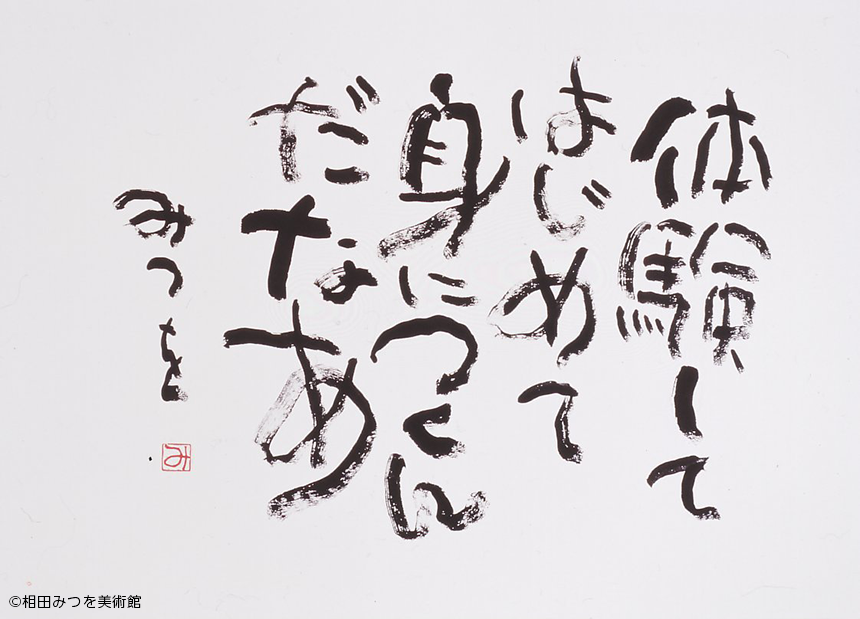 体験して
はじめて
身につくん
だなあ
みつを
み
©相田みつを美術館